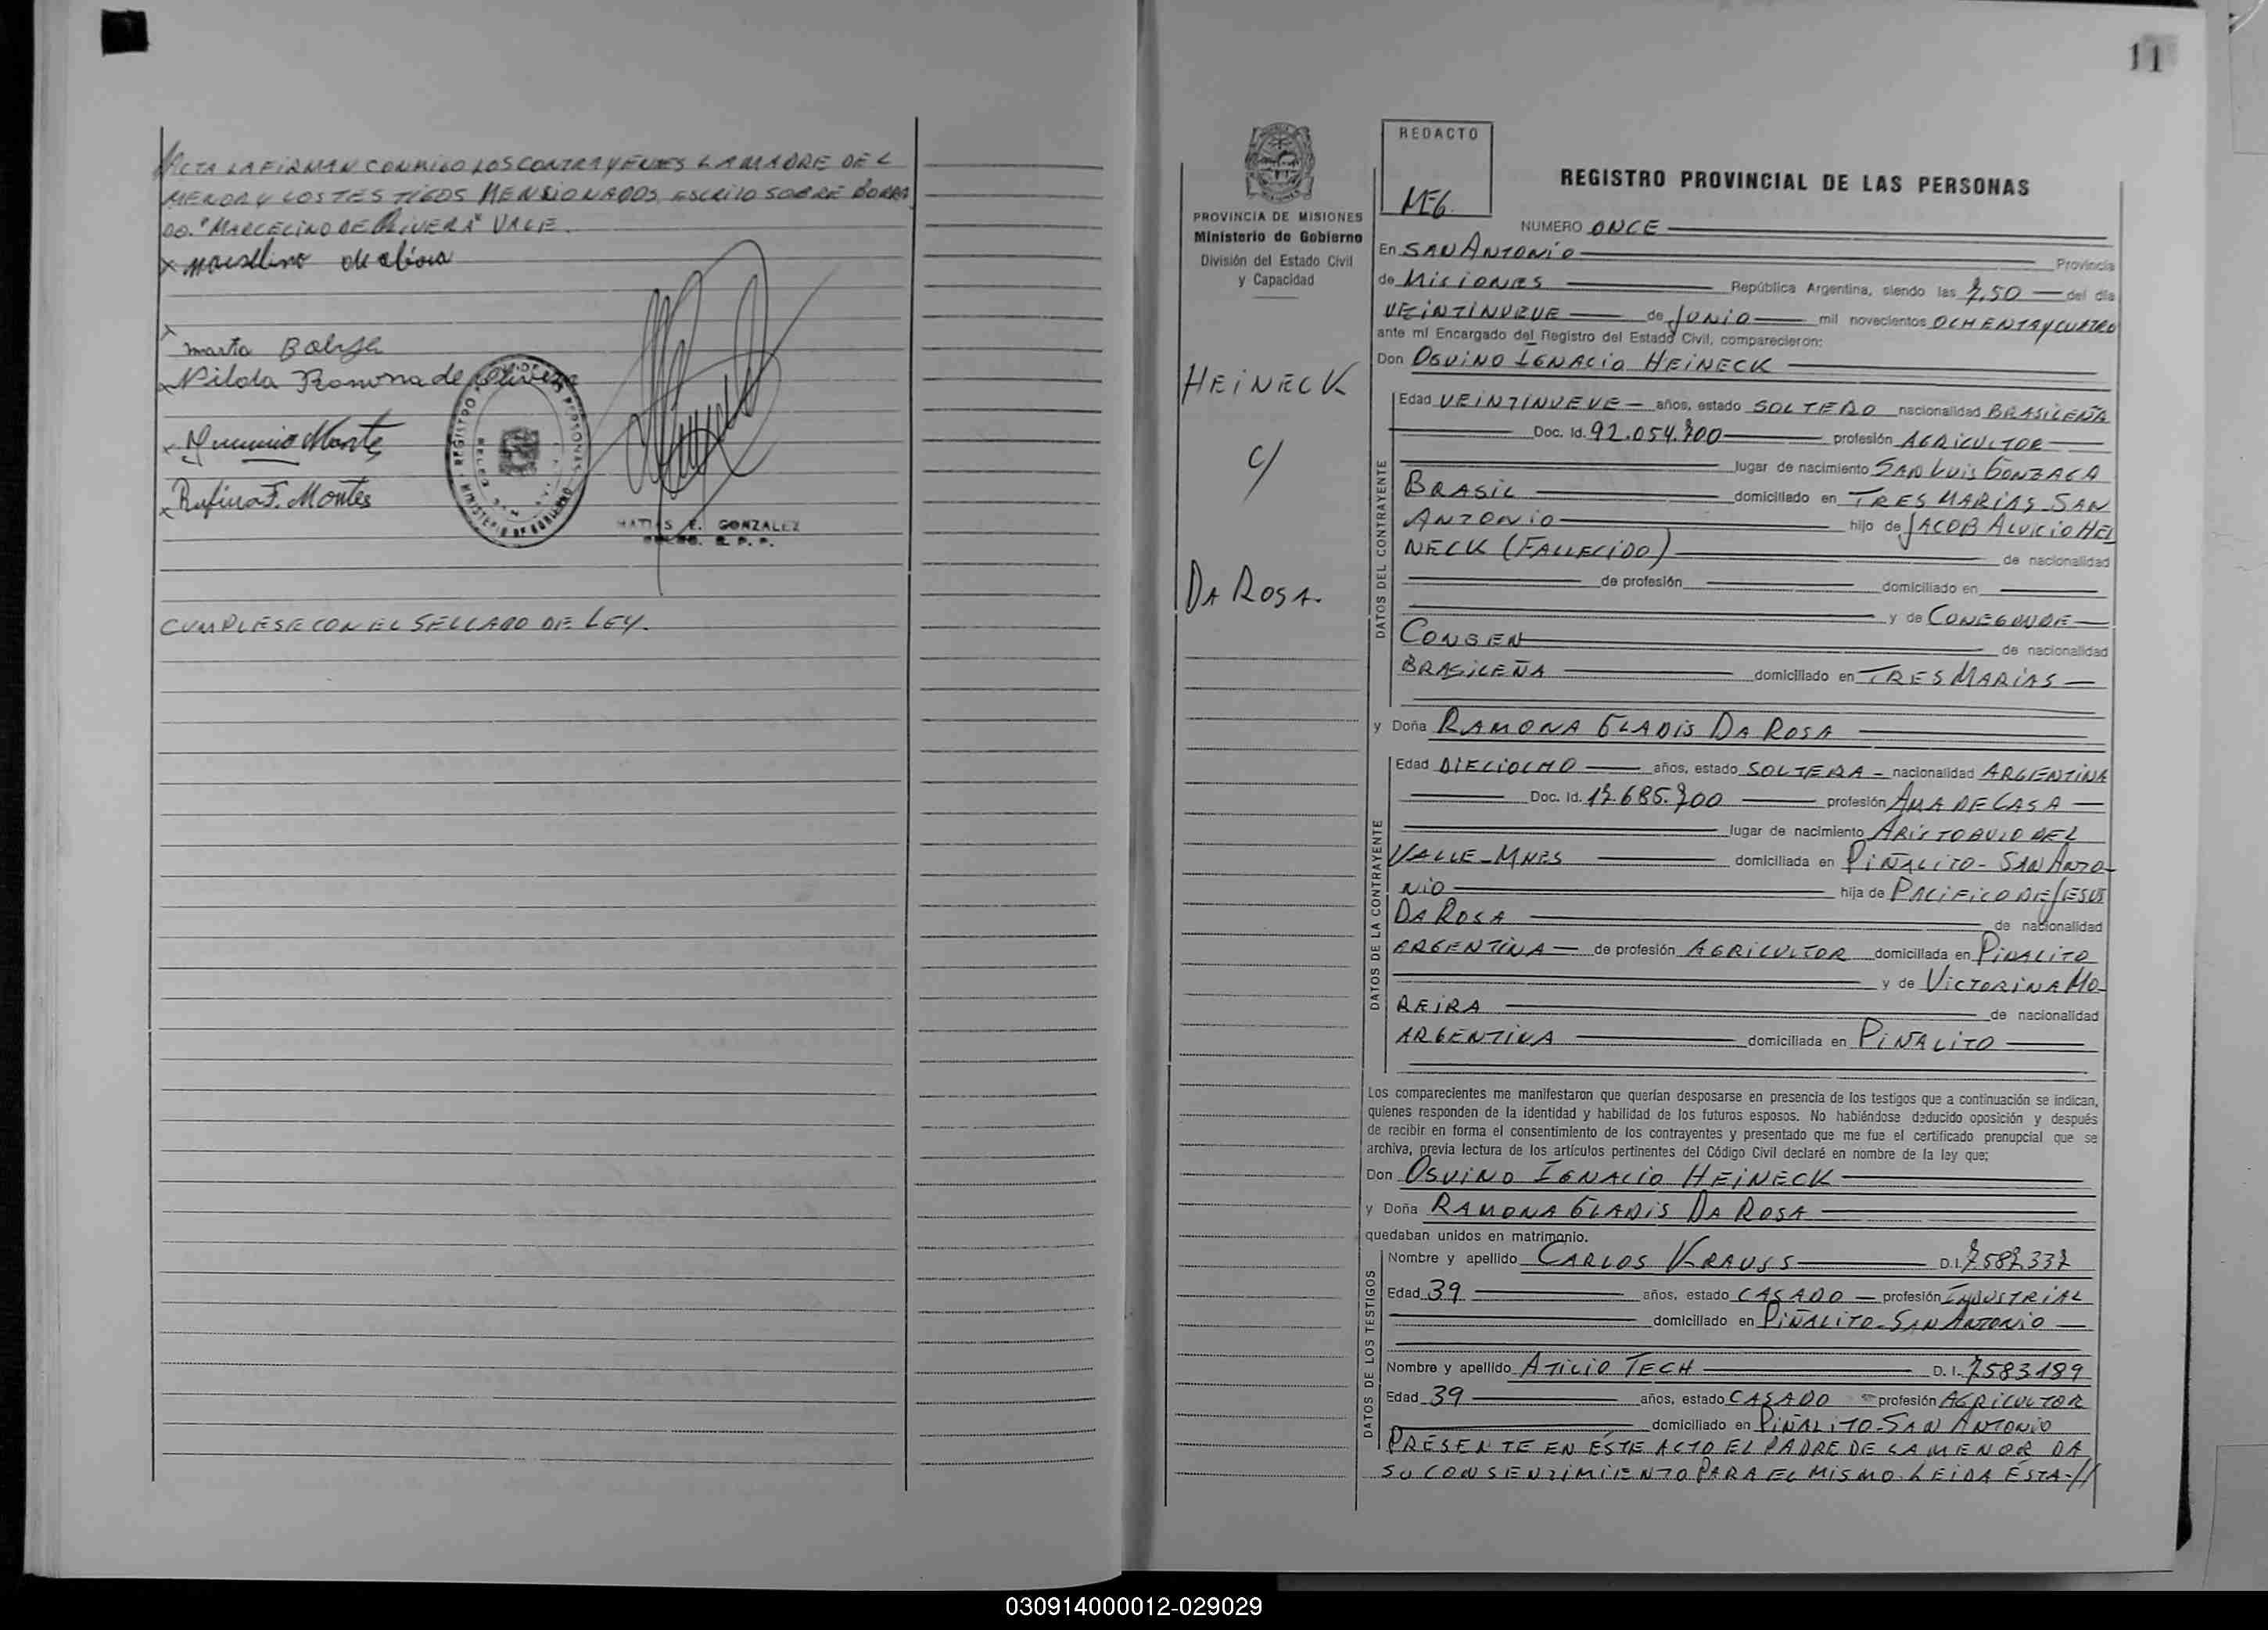 ACTA LA FIRMAN CONMIGO LOS CONTRAYENTES LA MADRE DEL
MENOR Y LOS TESTIGOS MENSIONADOS, ESCRITO SOBRE BORRA
DO. "MARCELINO DE OLIVERA" VALE.
x
x marta
x Nilda Ramona de
x Montes
x Rufina F. Montes
REGISTRO PERSONAS
MINISTERIO DE GOBIERNO
MATIAS E. GONZALEZ
CUMPLESE CON EL SELLADO DE LEY.
11
PROVINCIA DE MISIONES
Ministerio de Gobierno
División del Estado Civil
y Capacidad
HEINECK
c/
DA ROSA.
REDACTO
MEG.
REGISTRO PROVINCIAL DE LAS PERSONAS
NUMERO ONCE
En SAN ANTONIO Provincia
de MISIONES República Argentina, siendo las 7,50 del día
VEINTINUEVE de JUNIO mil novecientos OCHENTA Y CUATRO
ante mí Encargado del Registro del Estado Civil, comparecieron:
Don OSVINO IGNACIO HEINECK
DATOS DEL CONTRAYENTE
Edad VEINTINUEVE años, estado SOLTERO nacionalidad BRASILEÑA
Doc. Id. 92.054.700 profesión AGRICULTOR
lugar de nacimiento SAN LUIS GONZAGA
BRASIL domiciliado en TRES MARIAS SAN
ANTONIO hijo de JACOB ALUICIO HEI
NECK (FALLECIDO) de nacionalidad
de profesión domiciliado en
y de CONEGUNDE
CONSEN de nacionalidad
BRASILEÑA domiciliado en TRES MARIAS
y Doña RAMONA GLADIS DA ROSA
DATOS DE LA CONTRAYENTE
Edad DIECIOCHO años, estado SOLTERA nacionalidad ARGENTINA
Doc. Id. 17.685.700 profesión AMA DE CASA
lugar de nacimiento ARISTOBULO DEL
VALLE-MNES domiciliada en PIÑALITO-SAN ANTO-
NIO hija de PACIFICO DE JESUS
DA ROSA de nacionalidad
ARGENTINA de profesión AGRICULTOR domiciliada en PIÑALITO
y de VICTORINA MO-
REIRA de nacionalidad
ARGENTINA domiciliada en PIÑALITO
Los comparecientes me manifestaron que querían desposarse en presencia de los testigos que a continuación se indican,
quienes responden de la identidad y habilidad de los futuros esposos. No habiéndose deducido oposición y después
de recibir en forma el consentimiento de los contrayentes y presentado que me fue el certificado prenupcial que se
archiva, previa lectura de los artículos pertinentes del Código Civil declaré en nombre de la ley que:
Don OSVINO IGNACIO HEINECK
y Doña RAMONA GLADIS DA ROSA
quedaban unidos en matrimonio.
DATOS DE LOS TESTIGOS
Nombre y apellido CARLOS KRAUSS D.I. 7587337
Edad 39 años, estado CASADO profesión INDUSTRIAL
domiciliado en PIÑALITO-SAN ANTONIO
Nombre y apellido ATILIO TECH D. I. 7583189
Edad 39 años, estado CASADO profesión AGRICULTOR
domiciliado en PIÑALITO-SAN ANTONIO
PRESENTE EN ÉSTE ACTO EL PADRE DE LA MENOR DA
SU CONSENTIMIENTO PARA EL MISMO. LEIDA ÉSTA-//
030914000012-029029